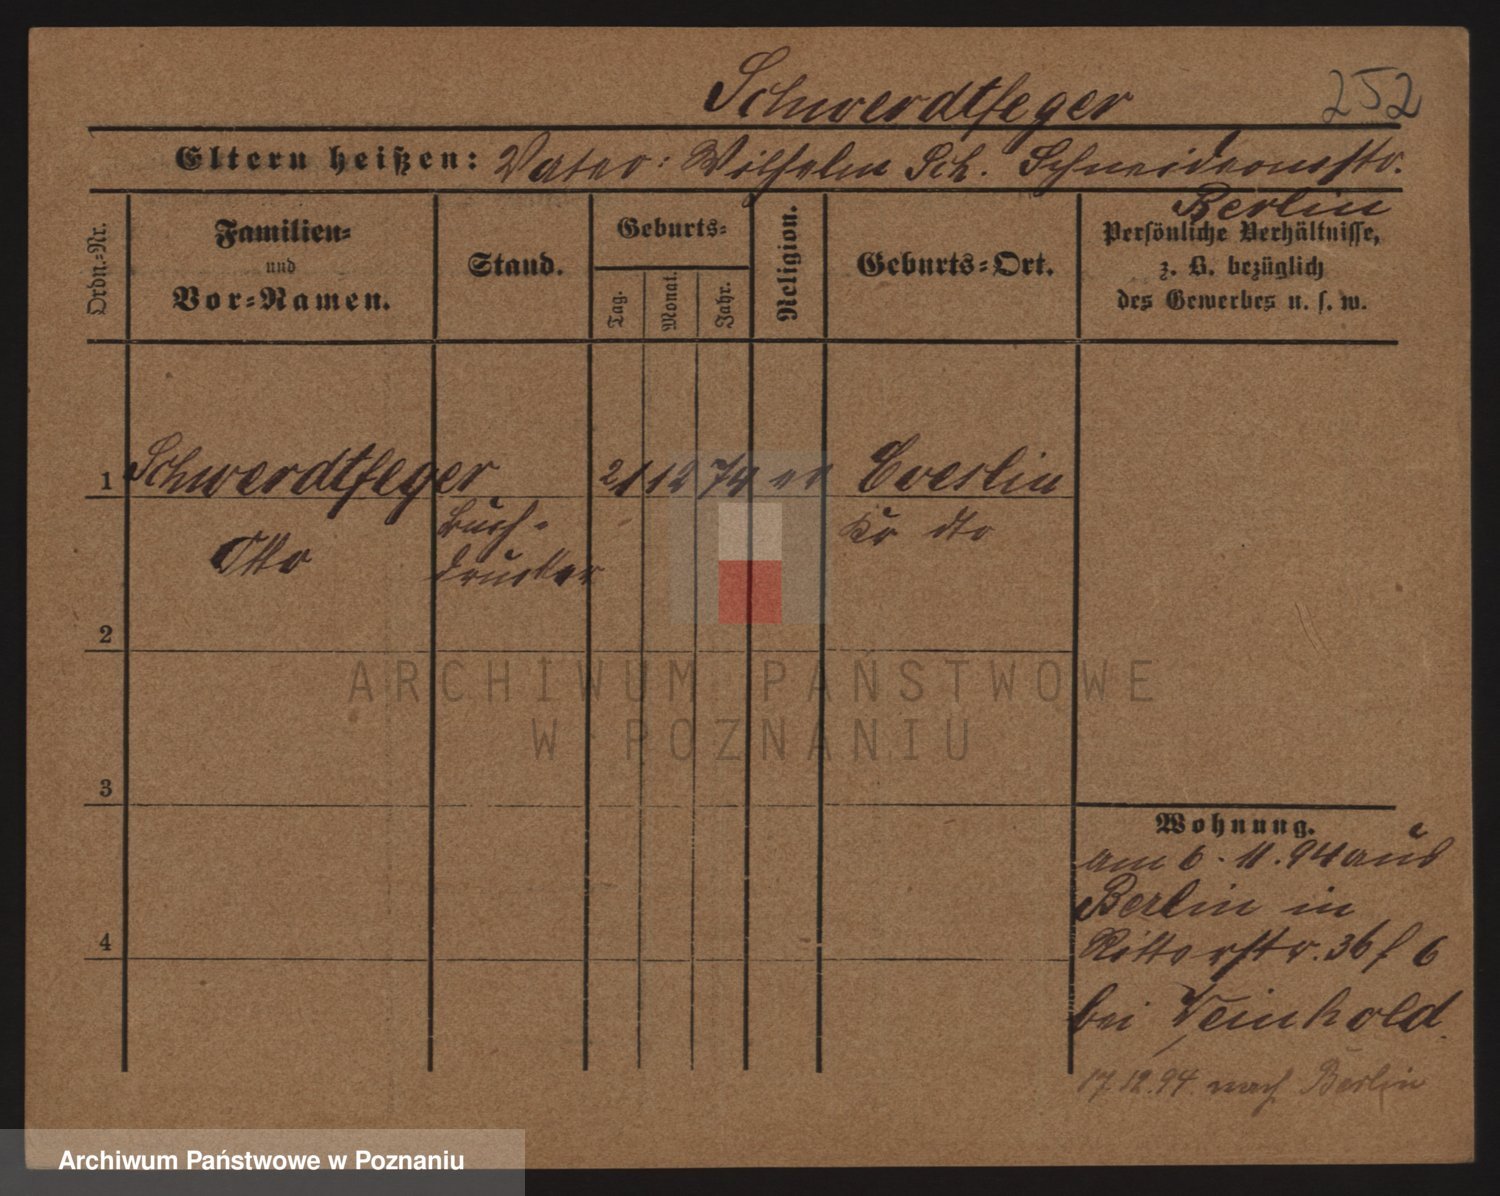 Schwerdtfeger 252
Eltern heißen: Vater: Wilhelm Sch. Schneidermstr.
Berlin
Ordn.-Nr.
Familien-
und
Vor-Namen.
Stand.
Geburts-
Tag.
Monat.
Jahr.
Religion.
Geburts-Ort.
Persönliche Verhältnisse,
z. B. bezüglich
des Gewerbes u. s. w.
1 Schwerdtfeger 21 12 74 ev
Otto
Buch-
drucker
Kr dto
2
3
4
Wohnung.
am 6. 11. 94 aus
Berlin in
Ritterstr. 36 f 6
bei Weinhold
17.12.94 nach Berlin
ARCHIWUM PAŃSTWOWE
W POZNANIU
Archiwum Państwowe w Poznaniu